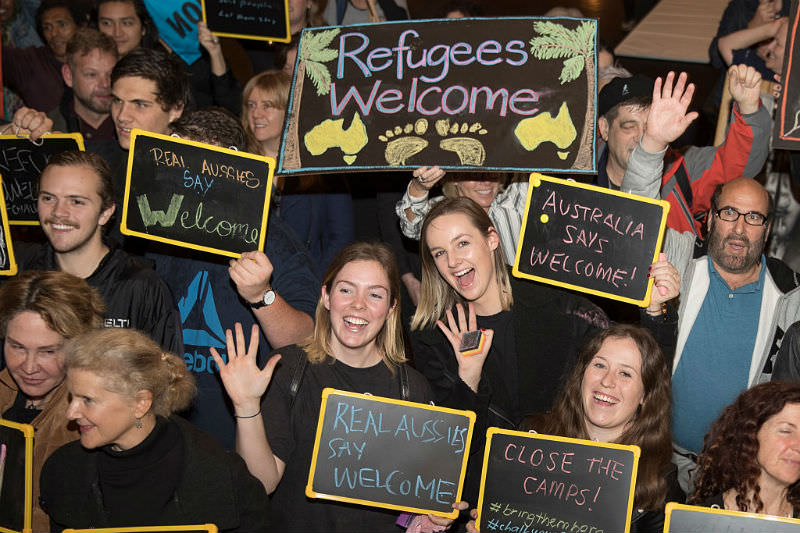 Refugees
Welcome
REAL AUSSIES
SAY
Welcome
AUSTRALIA
SAYS
WELCOME!
REAL AUSSIES
SAY
WELCOME
CLOSE THE
CAMPS!
#bringthemhere